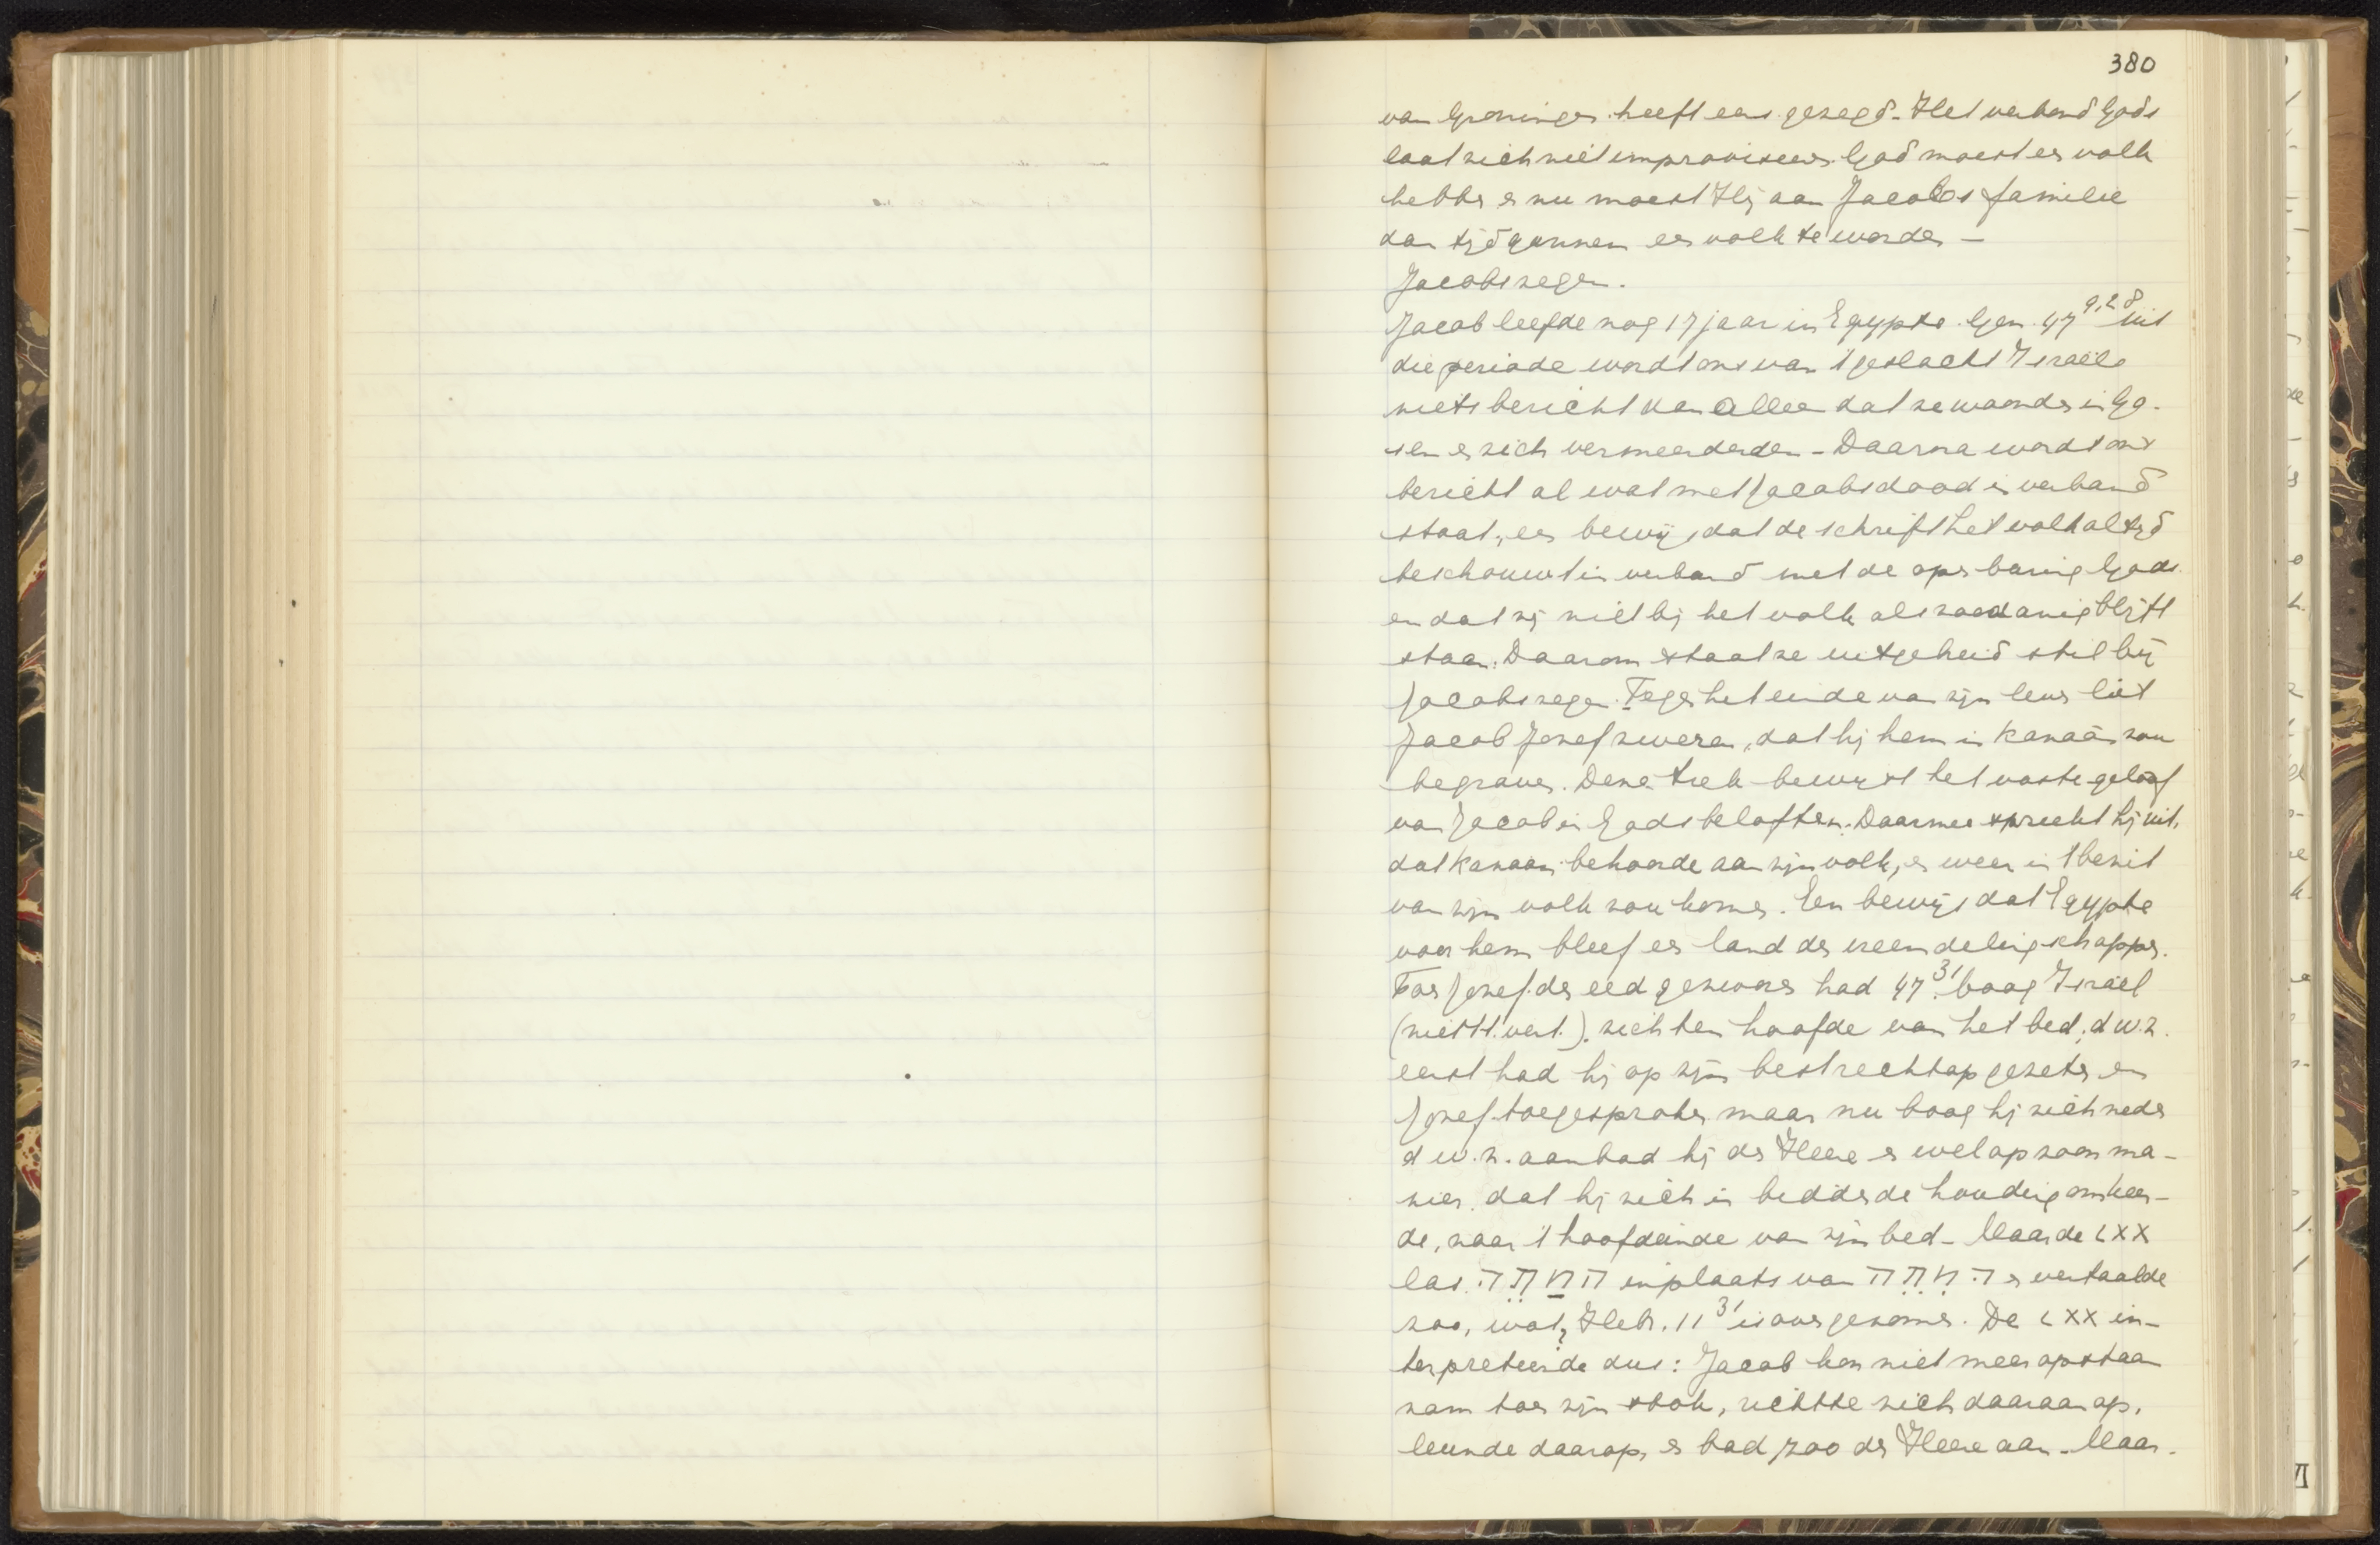 380
van Groningen heeft eens gezegd. Het verbond Gods
laat zich niet improviseeren. God moest een volk
hebben en nu moest Hij aan Jacobs familie
dan tijd gunnen een volk te worden —
Jacobs zegen.
Jacob leefde nog 17 jaar in Egypte. Gen. 47 9,28 uit
die periode wordt ons van 't geslacht Israëls
niets bericht dan alleen dat ze woonden in Go-
sen en zich vermeerderden - Daarna wordt ons
bericht al wat met Jacobs dood in verband
staat, een bewijs dat de schrift het volk altijd
beschouwt in verband met de openbaring Gods
en dat zij niet bij het volk als zoodanig blijft
staan. Daarom staat ze uitgebreid stil bij
Jacobs zegen. Tegen het einde van zijn leven liet
Jacob Jozef zweren, dat hij hem in Kanaän zou
begraven. Deze trek bewijst het vaste geloof
van Jacob in Gods beloften. Daarmee spreekt hij uit,
dat Kanaan behoorde aan zijn volk, en weer in 't bezit
van zijn volk zou komen. Een bewijs dat Egypte
voor hem bleef een land der vreemdelingschappen.
Toen Jozef den eed gezworen had 47 31. boog Israël
(niet St. vert.). zich ten hoofde van het bed, d.w.z.
eerst had hij op zijn bed rechtop gezeten en
Jozef toegesproken maar nu boog hij zich neder
d.w.z. aanbad hij den Heere en wel op zoon ma-
nier, dat hij zich in biddende houding omkeer-
de, naar 't hoofdeinde van zijn bed - Maar de LXX
las המטה in plaats van המטה en vertaalde
zoo, wat Hebr. 11 31 is overgenomen. De LXX in-
terpreteerde dus: Jacob kon niet meer opstaan
nam toen zijn stok, richtte zich daaraan op,
leunde daarop, en bad zoo den Heere aan - Maar